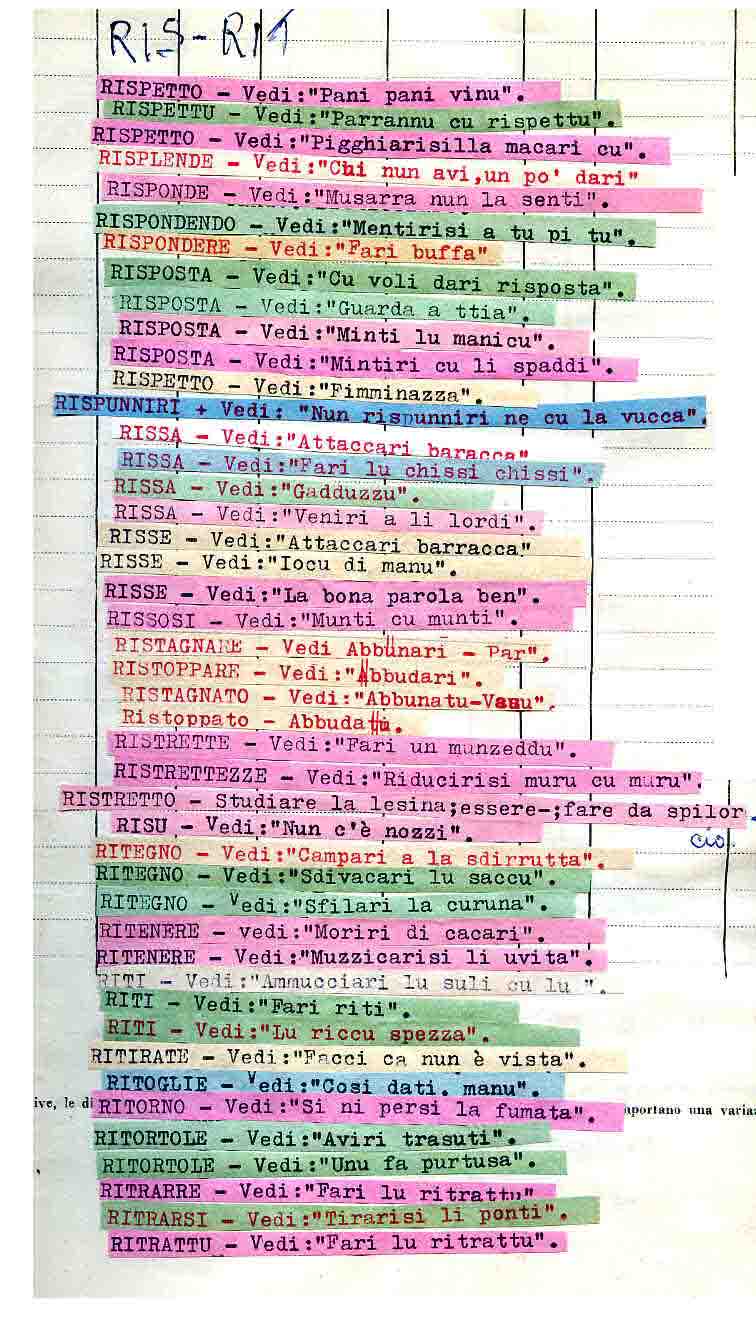 RIS-RIT
RISPETTO - Vedi:"Pani pani vinu".
RISPETTU - Vedi:"Parrannu cu rispettu".
RISPETTO - Vedi:"Pigghiarisilla macari cu".
RISPLENDE - Vedi:"Chi nun avi,un po' dari"
RISPONDE - Vedi:"Musarra nun la senti".
RISPONDENDO - Vedi:"Mentirisi a tu pi tu".
RISPONDERE - Vedi:"Fari buffa"
RISPOSTA - Vedi:"Cu voli dari risposta".
RISPOSTA - Vedi:"Guarda a ttia".
RISPOSTA - Vedi:"Minti lu manicu".
RISPOSTA - Vedi:"Mintiri cu li spaddi".
RISPETTO - Vedi:"Fimminazza".
RISPUNNIRI + Vedi: "Nun rispunniri ne cu la vucca".
RISSA - Vedi:"Attaccari baracca"
RISSA - Vedi:"Fari lu chissi chissi".
RISSA - Vedi:"Gadduzzu".
RISSA - Vedi:"Veniri a li lordi".
RISSE - Vedi:"Attaccari barracca"
RISSE - Vedi:"Iocu di manu".
RISSE - Vedi:"La bona parola ben".
RISSOSI - Vedi:"Munti cu munti".
RISTAGNARE - Vedi Abbunari - Par".
RISTOPPARE - Vedi:"Abbudari".
RISTAGNATO - Vedi:"Abbunatu-Vasu".
Ristoppato - Abbudatu.
RISTRETTE - Vedi:"Fari un munzeddu".
RISTRETTEZZE - Vedi:"Riducirisi muru cu muru".
RISTRETTO - Studiare la lesina;essere-;fare da spilor
cio.
RISU - Vedi:"Nun c'è nozzi".
RITEGNO - Vedi:"Campari a la sdirrutta".
RITEGNO - Vedi:"Sdivacari lu saccu".
RITEGNO - Vedi:"Sfilari la curuna".
RITENERE - vedi:"Moriri di cacari".
RITENERE - Vedi:"Muzzicarisi li uvita".
RITI - Vedi:"Ammucciari lu suli cu lu ".
RITI - Vedi:"Fari riti".
RITI - Vedi:"Lu riccu spezza".
RITIRATE - Vedi:"Facci ca nun è vista".
RITOGLIE - Vedi:"Cosi dati. manu".
ive, le di RITORNO - Vedi:"Si ni persi la fumata". mportano una varia
RITORTOLE - Vedi:"Aviri trasuti".
RITORTOLE - Vedi:"Unu fa purtusa".
RITRARRE - Vedi:"Fari lu ritrattu"
RITRARSI - Vedi:"Tirarisi li ponti".
RITRATTU - Vedi:"Fari lu ritrattu".